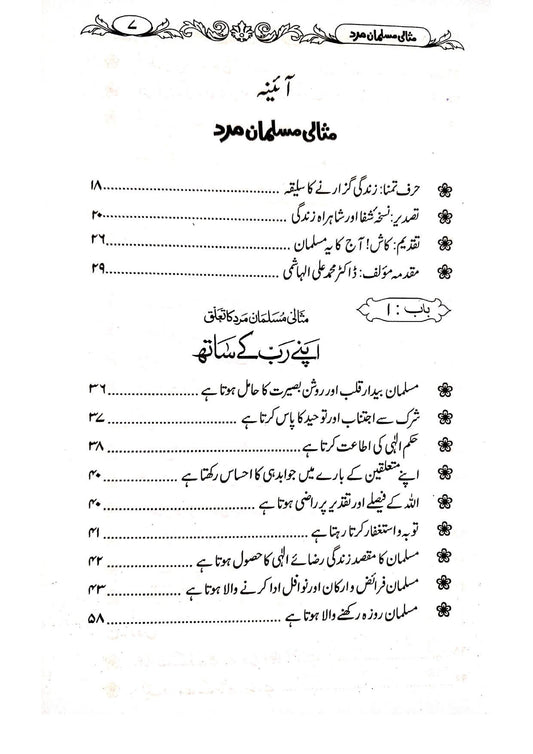 مثالی مسلمان مرد ۷
آئینہ
مثالی مسلمان مرد
حرف تمنا: زندگی گزارنے کا سلیقہ ۱۸
تصدیر: نسخۂ شفا اور شاہراہ زندگی ۲۰
تقدیم: کاش! آج کا یہ مسلمان ۲۶
مقدمہ مؤلف: ڈاکٹر محمد علی الہاشمی ۲۹
باب: ۱
مثالی مسلمان مرد کا تعلق
اپنے رب کے ساتھ
مسلمان بیدار قلب اور روشن بصیرت کا حامل ہوتا ہے ۳۶
شرک سے اجتناب اور توحید کا پاس کرتا ہے ۳۷
حکم الٰہی کی اطاعت کرتا ہے ۳۸
اپنے متعلقین کے بارے میں جوابدہی کا احساس رکھتا ہے ۴۰
اللہ کے فیصلے اور تقدیر پر راضی ہوتا ہے ۴۰
توبہ و استغفار کرتا رہتا ہے ۴۱
مسلمان کا مقصد زندگی رضائے الٰہی کا حصول ہوتا ہے ۴۲
مسلمان فرائض و ارکان اور نوافل ادا کرنے والا ہوتا ہے ۴۳
مسلمان روزہ رکھنے والا ہوتا ہے ۵۸